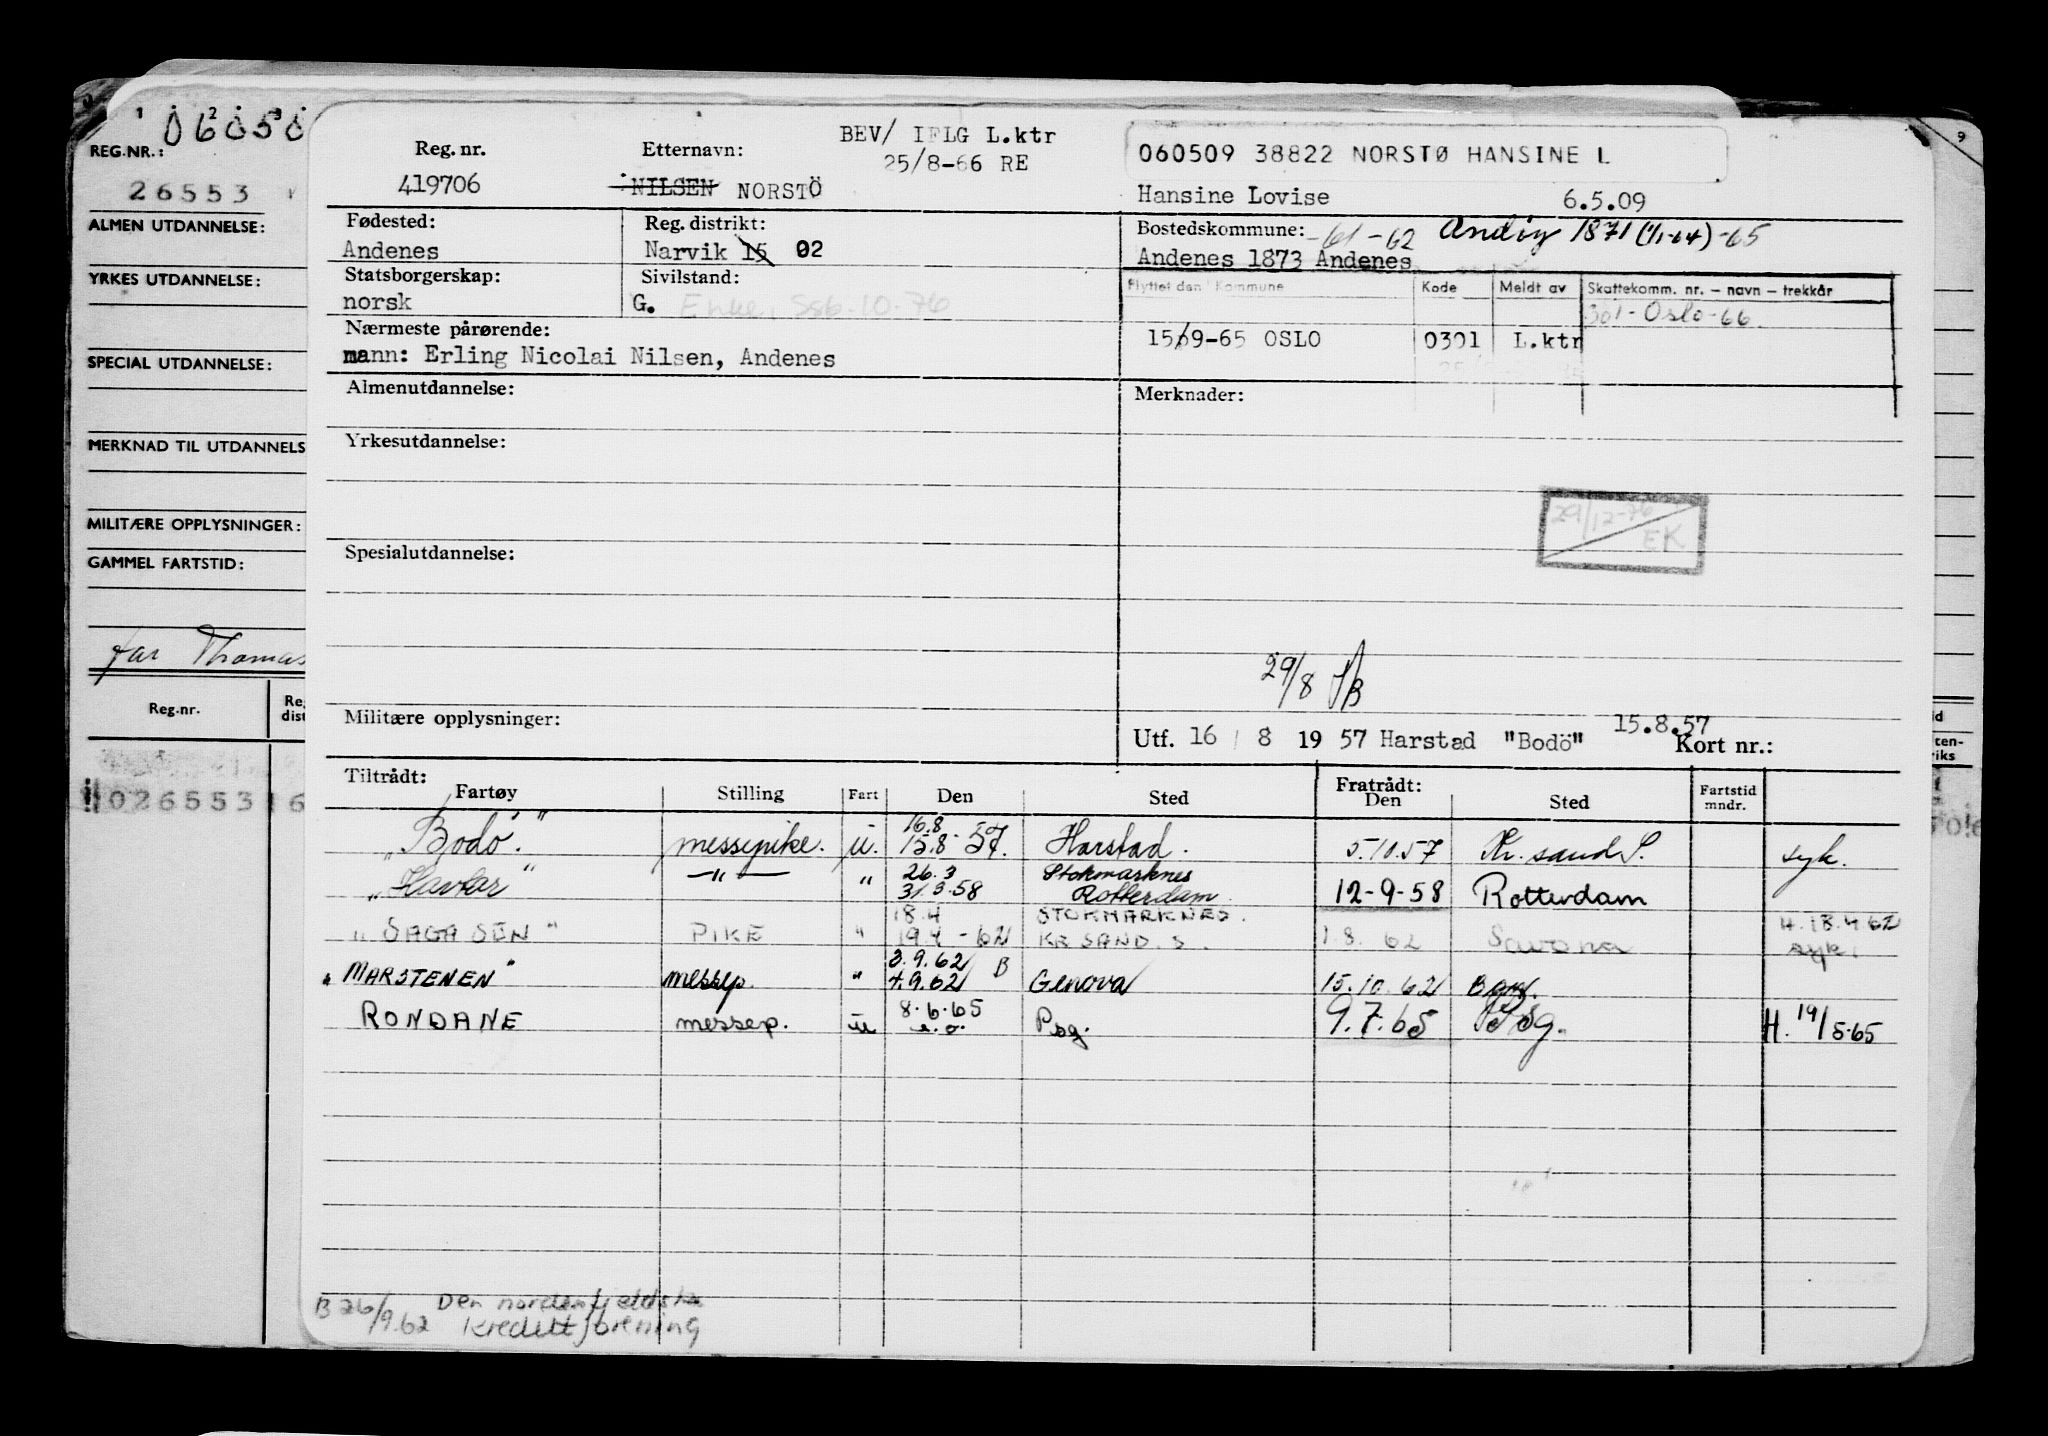 06050
REG.NR.:
26553
ALMEN UTDANNELSE:
YRKES UTDANNELSE:
SPECIAL UTDANNELSE:
MERKNAD TIL UTDANNELS
MILITÆRE OPPLYSNINGER:
GAMMEL FARTSTID:
far Thomas
Reg.nr.
026553
Reg. nr. Etternavn: BEV/ IFLG L.ktr
25/8-66 RE
419706 NILSEN NORSTÖ
060509 38822 NORSTØ HANSINE L
Hansine Lovise 6.5.09
Fødested: Reg. distrikt:
Andenes Narvik 15 02
Bostedskommune: -61-62 Andøy 1871 (1/1-64)-65
Andenes 1873 Andenes
Statsborgerskap: Sivilstand:
norsk G. Enke, SSB.10.76
Flyttet den Kommune Kode Meldt av Skattekomm. nr. – navn – trekkår
301-Oslo-66
15/9-65 OSLO 0301 L.ktr
Nærmeste pårørende:
mann: Erling Nicolai Nilsen, Andenes
Almenutdannelse: Merknader:
Yrkesutdannelse:
29/12-76
EK
Spesialutdannelse:
29/8
Militære opplysninger:
15.8.57
Utf. 16 / 8 19 57 Harstad "Bodö" Kort nr.:
Tiltrådt: Fratrådt:
Fartøy Stilling Fart Den Sted Den Sted Fartstid mndr.
16.8
"Bodö." messepike. u. 15.8-57. Harstad. 5.10.57 Kr.sand S. syk.
26.3 Stokmarknes
"Havtor" —"— " 31.3.58 Rotterdam 12-9-58 Rotterdam
18.4 STOKMARKNES. H. 18.4 62
"SAGA SEN" PIKE " 19.4-62 KR SAND. S. 1.8.62 Savona syk.
3.9.62 B
"MARSTENEN" messep. " 4.9.62 Genova 15.10.62
8.6.65
RONDANE messep. u u.o. Psg. 9.7.65 Psg. H. 19/5-65
B 26/9.62 Den nordenfjeldske
Kredittforening